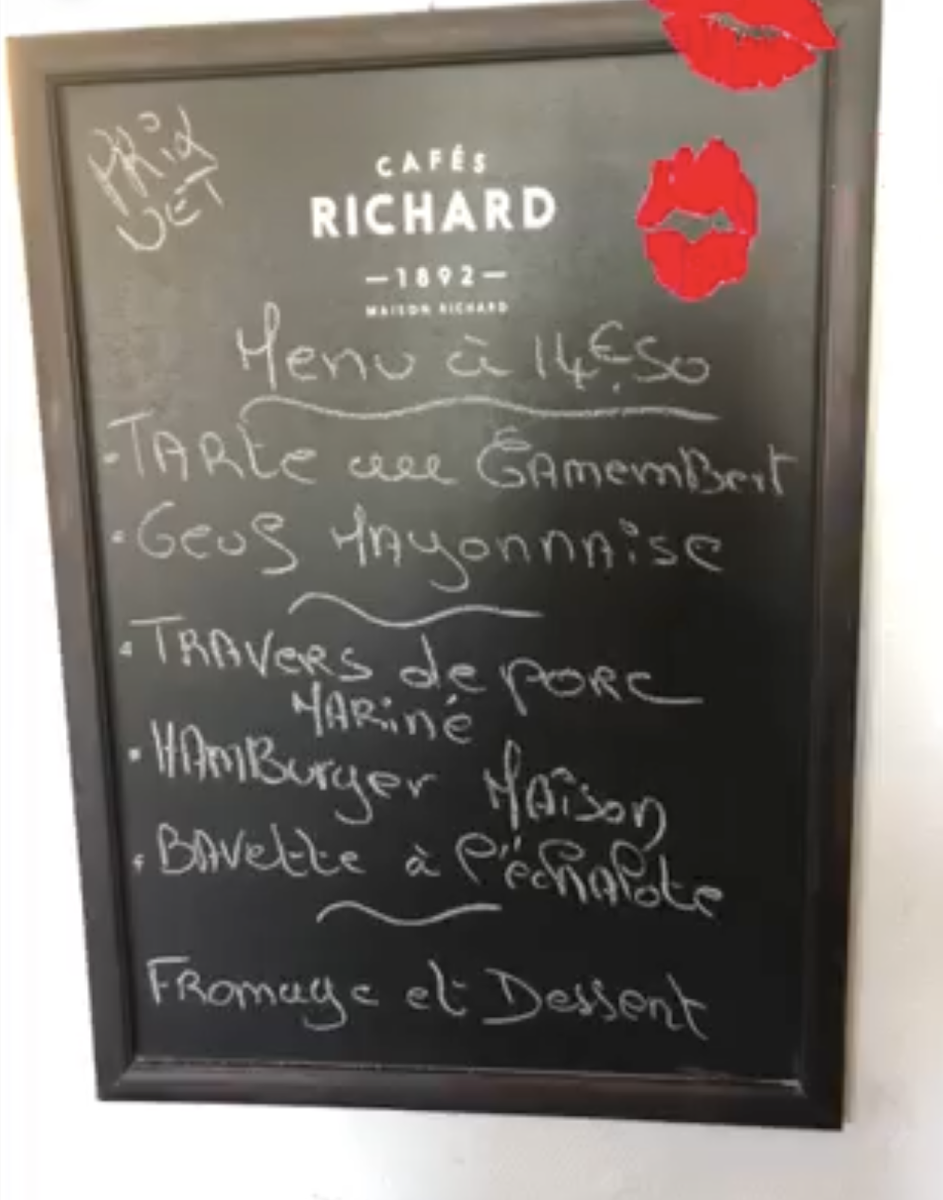 CAFÉS
RICHARD
—1892—
MAISON RICHARD
Menu à 14€50
·TARte au CAmemBert
·Oeufs MAyonnAise
·TRAVERS de porc
MARiné
·HAmBurger MAison
·BAVette à l'échAlote
Fromage et Dessert